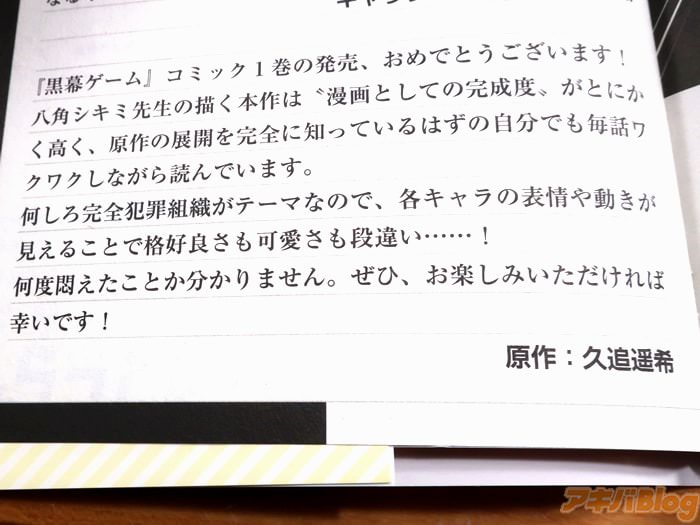 『黒幕ゲーム』コミック1巻の発売、おめでとうございます！
八角シキミ先生の描く本作は〝漫画としての完成度〟がとにか
く高く、原作の展開を完全に知っているはずの自分でも毎話ワ
クワクしながら読んでいます。
何しろ完全犯罪組織がテーマなので、各キャラの表情や動きが
見えることで格好良さも可愛さも段違い……！
何度悶えたことか分かりません。ぜひ、お楽しみいただければ
幸いです！
原作：久追遥希
アキバBlog